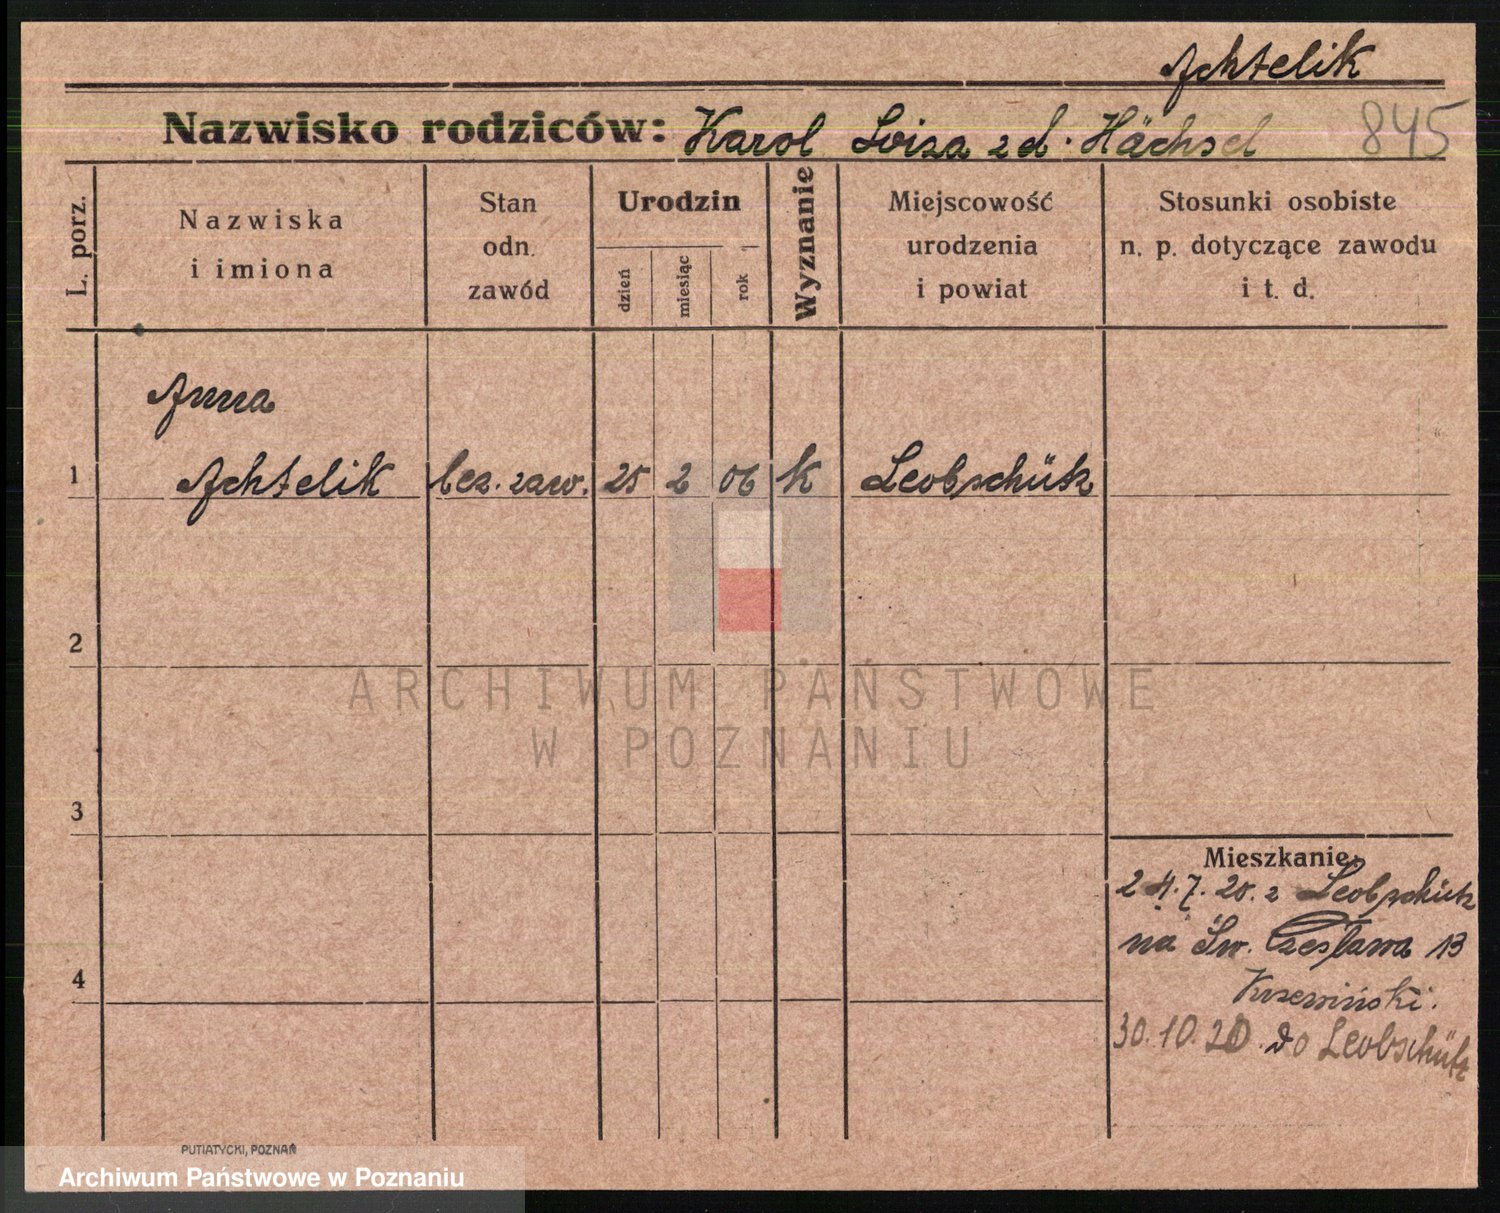 Achtelik
Nazwisko rodziców: Karol Luiza zd. Hächsel 845
L. porz.
Nazwiska
i imiona
Stan
odn.
zawód
Urodzin
dzień
miesiąc
rok
Wyznanie
Miejscowość
urodzenia
i powiat
Stosunki osobiste
n. p. dotyczące zawodu
i t. d.
Anna
1 Achtelik bez. zaw. 25 2 06 k Leobschütz
2
ARCHIWUM PAŃSTWOWE
W POZNANIU
3
Mieszkanie
24.7.20. z Leobschütz
na Św. Czesława 13
4
Krzewiński.
30.10.20. do Leobschütz
PUTIATYCKI, POZNAŃ
Archiwum Państwowe w Poznaniu